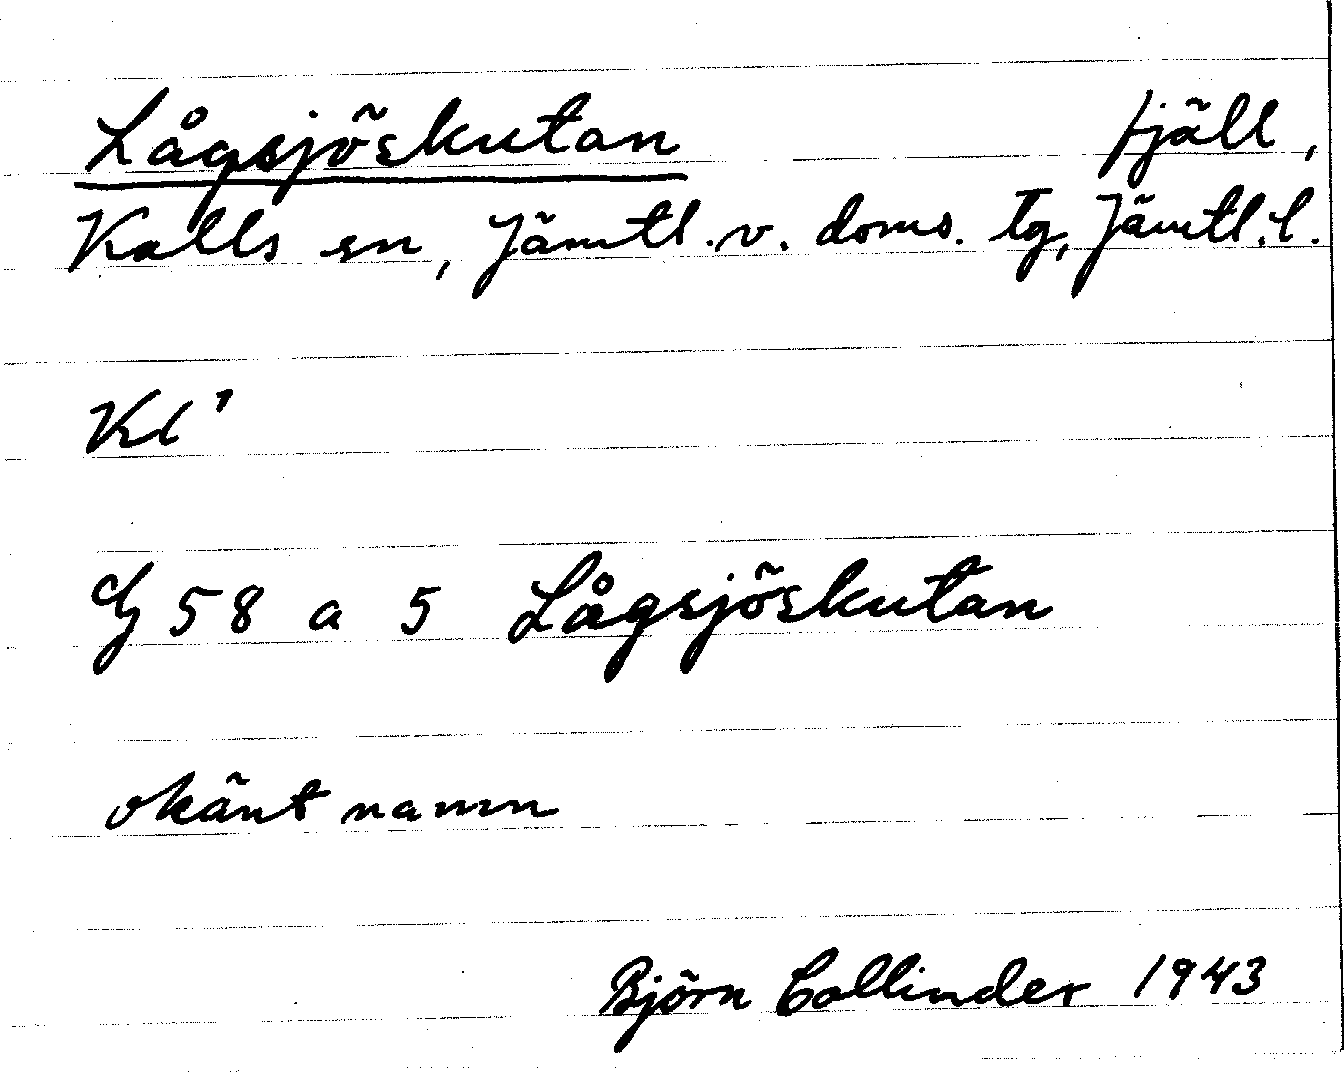 Lågsjöskutan fjäll,
Kalls sn, Jämtl. v. doms. tg, Jämtl. l.
Kl'
G 58 a 5 Lågsjöskutan
okänt namn
Björn Collinder 1943